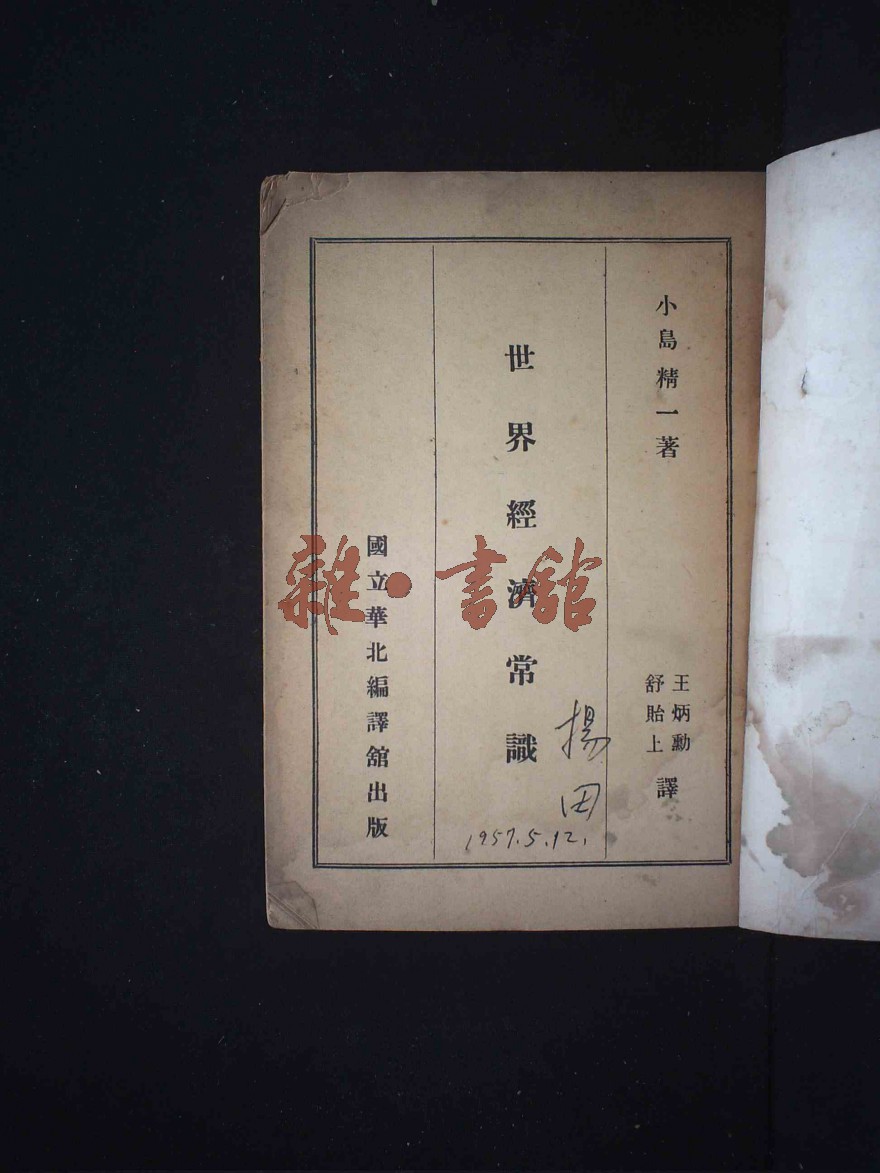 小島精一著
王炳勳
舒貽上
譯
世界經濟常識
揚田
1957.5.12.
國立華北編譯舘出版
雜·書舘